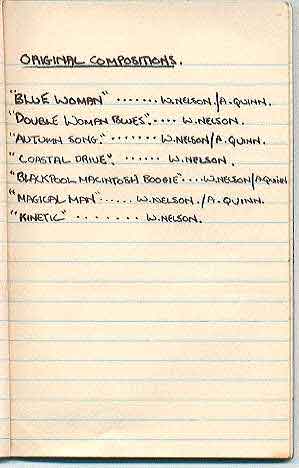 ORIGINAL COMPOSITIONS.
"BLUE WOMAN" ....... W.NELSON./A.QUINN.
"DOUBLE WOMAN BLUES".... W.NELSON.
"AUTUMN SONG." ....... W.NELSON/A.QUINN.
"COASTAL DRIVE". ...... W.NELSON.
"BLACKPOOL MACINTOSH BOOGIE"...W.NELSON/A.QUINN
"MAGICAL MAN"..... W.NELSON./A.QUINN.
"KINETIC" ....... W.NELSON.